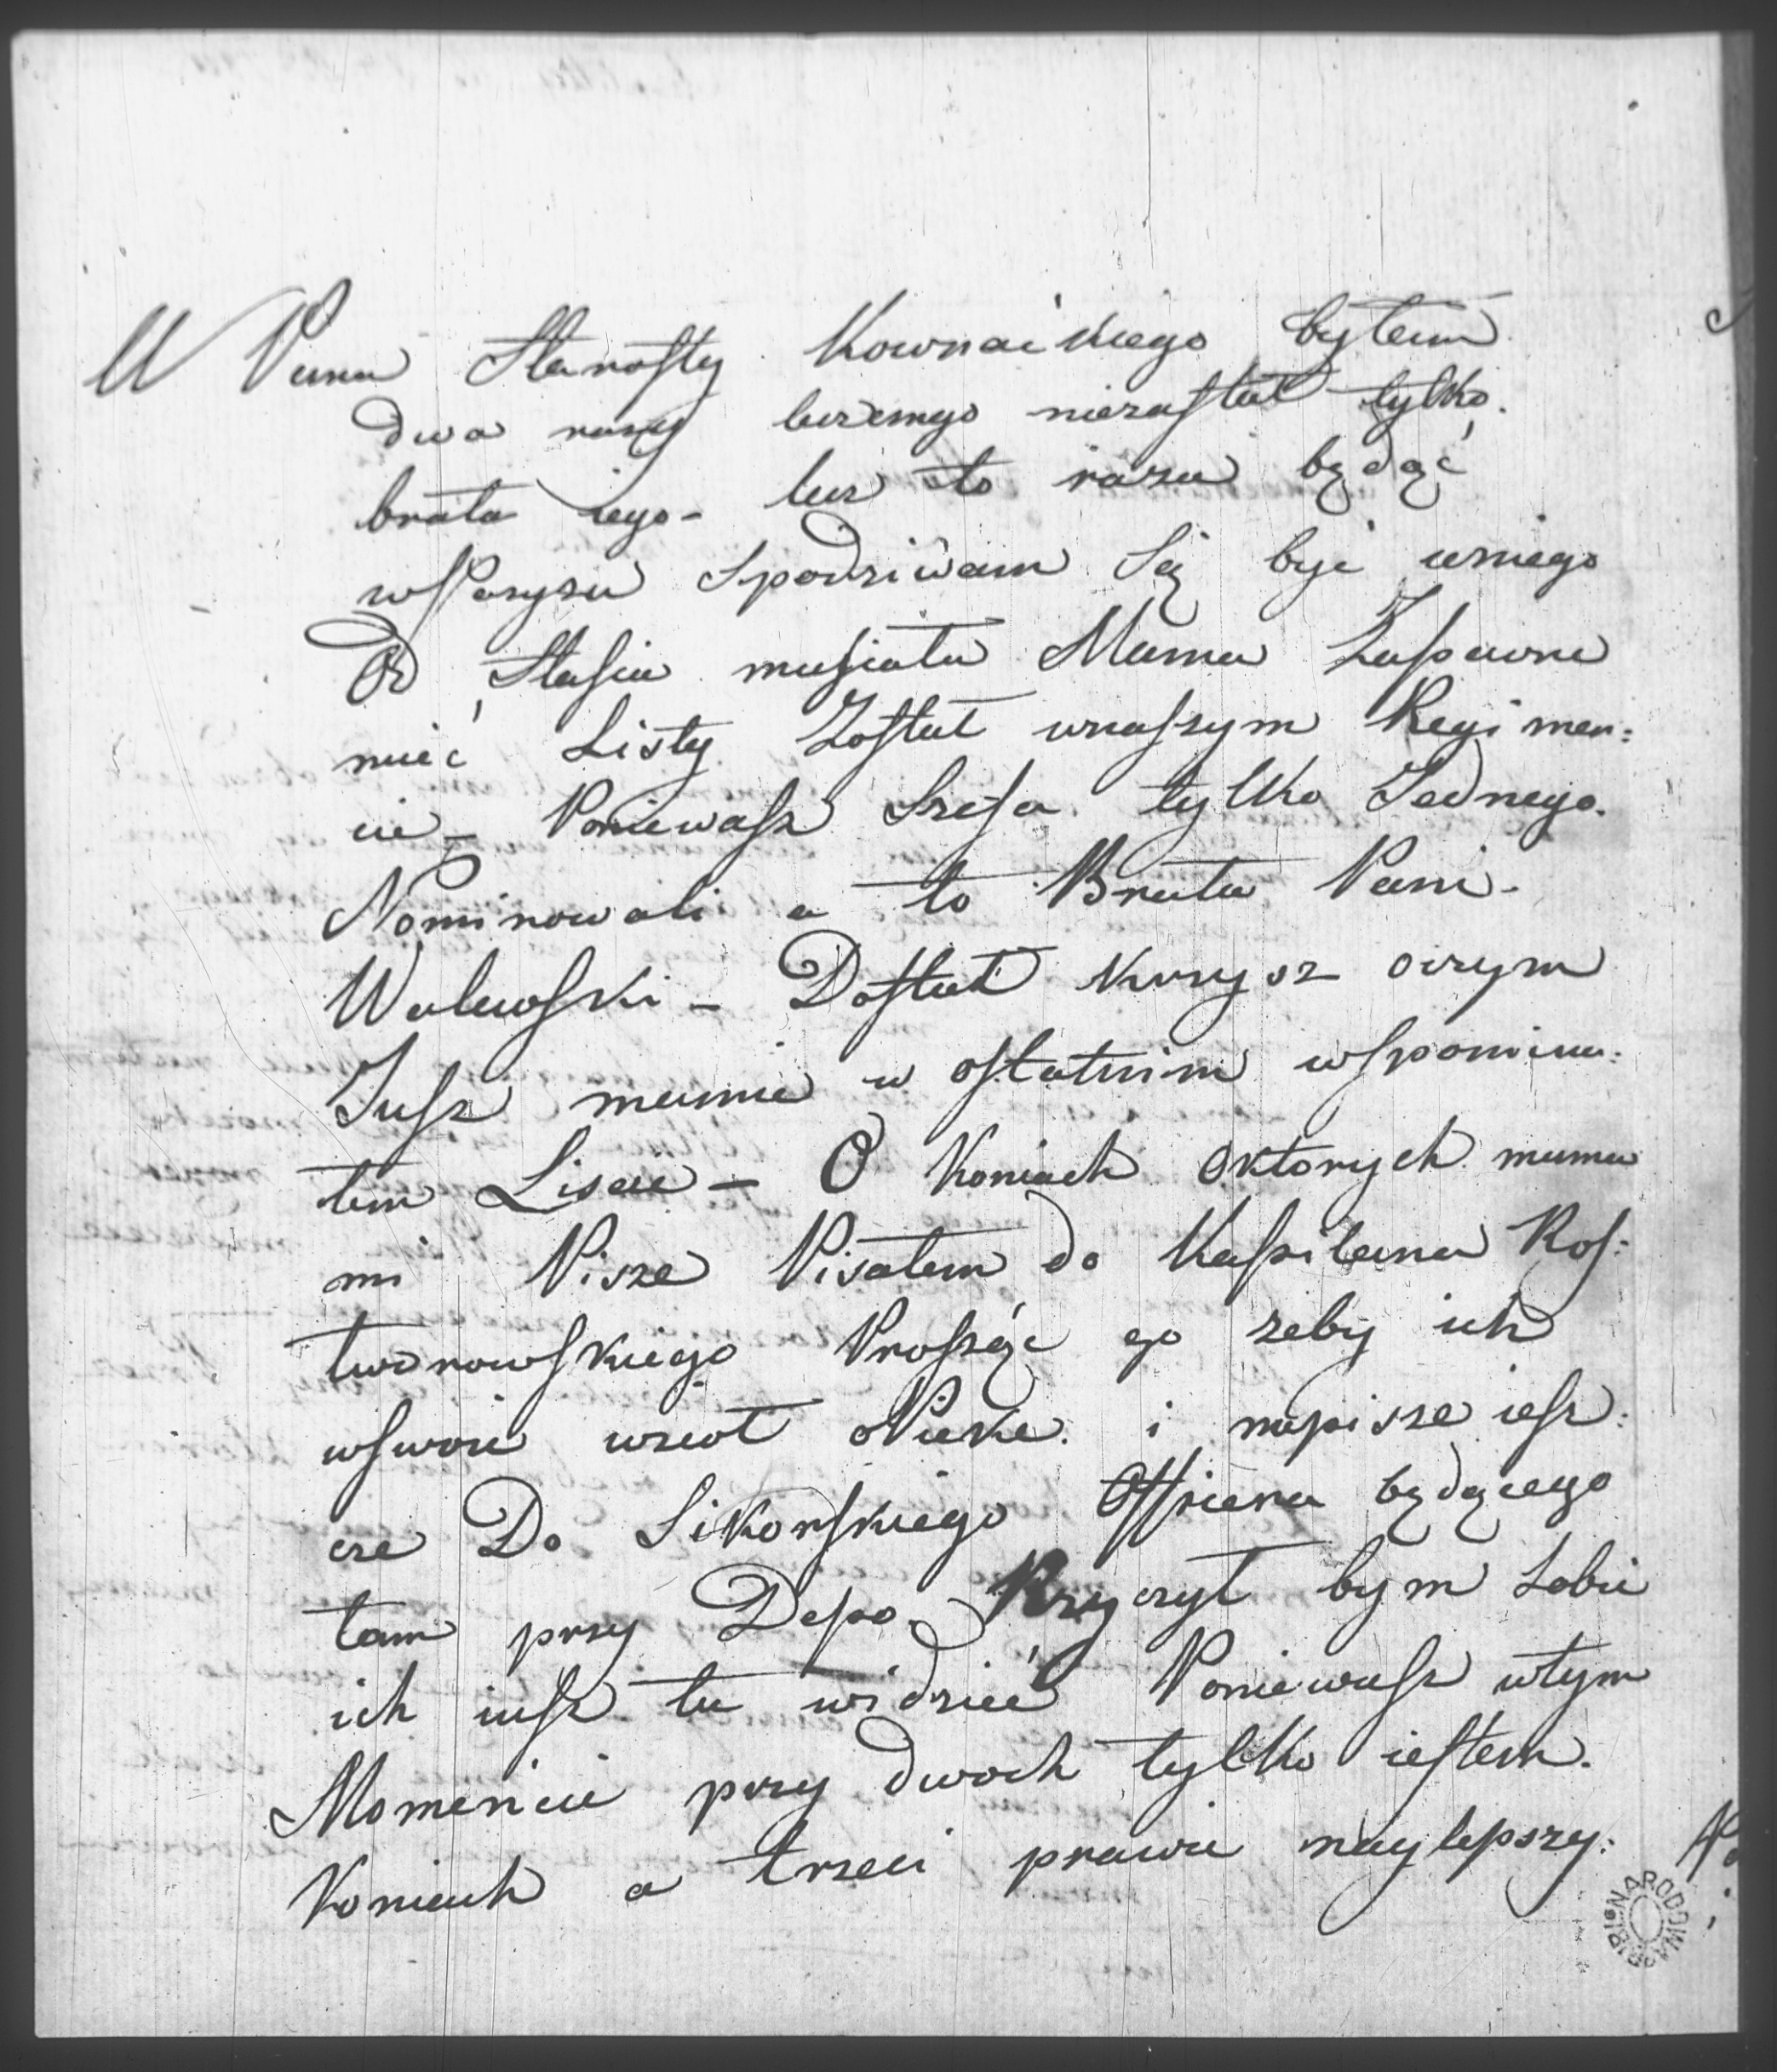 U Pana Starosty Kownaiskiego byłem
dwa razy leczemgo niezastał tylko.
brata iego - lecz to razu będąć
wParyzu Spodziwam Się być uniego
Od Stasia musiała Mama Zapewne
mieć Listy Został wnaszym Regimen:
cie - Poniewasz Szefa tylko Jednego.
Nominowali a to Brata Pani -
Walewski - Dostał Krzysz oczym
Jusz mamie w ostatnim wspomina:
łem Liscie - O Koniach Oktorych mama
mi Pisze Pisałem do Kapitana Ros:
tworowskiego Proszęc go zeby ich
wswoie wzioł oPieke. i napisze iesz:
cze Do Sikorskiego Officera będącego
tam przy Depo. Rzyczył bym Sobie
ich iusz tu widzieć Poniewasz wtym
Momencie przy dwoch tylko iestem.
Koniach a trzeci prawie naylepszy:
BIBL. NARODOWA